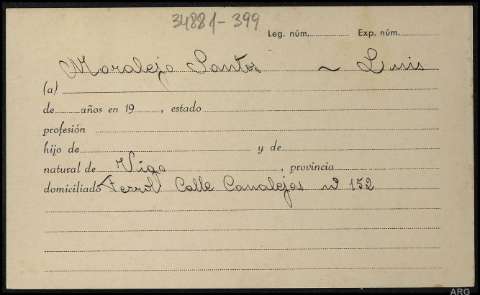 34881-399
Leg. núm. Exp. núm.
Moralejo Santos ~ Luis
(a)
de años en 19 , estado
profesión
hijo de y de
natural de Vigo , provincia
domiciliado Ferrol Calle Canalejas nº 152
ARG